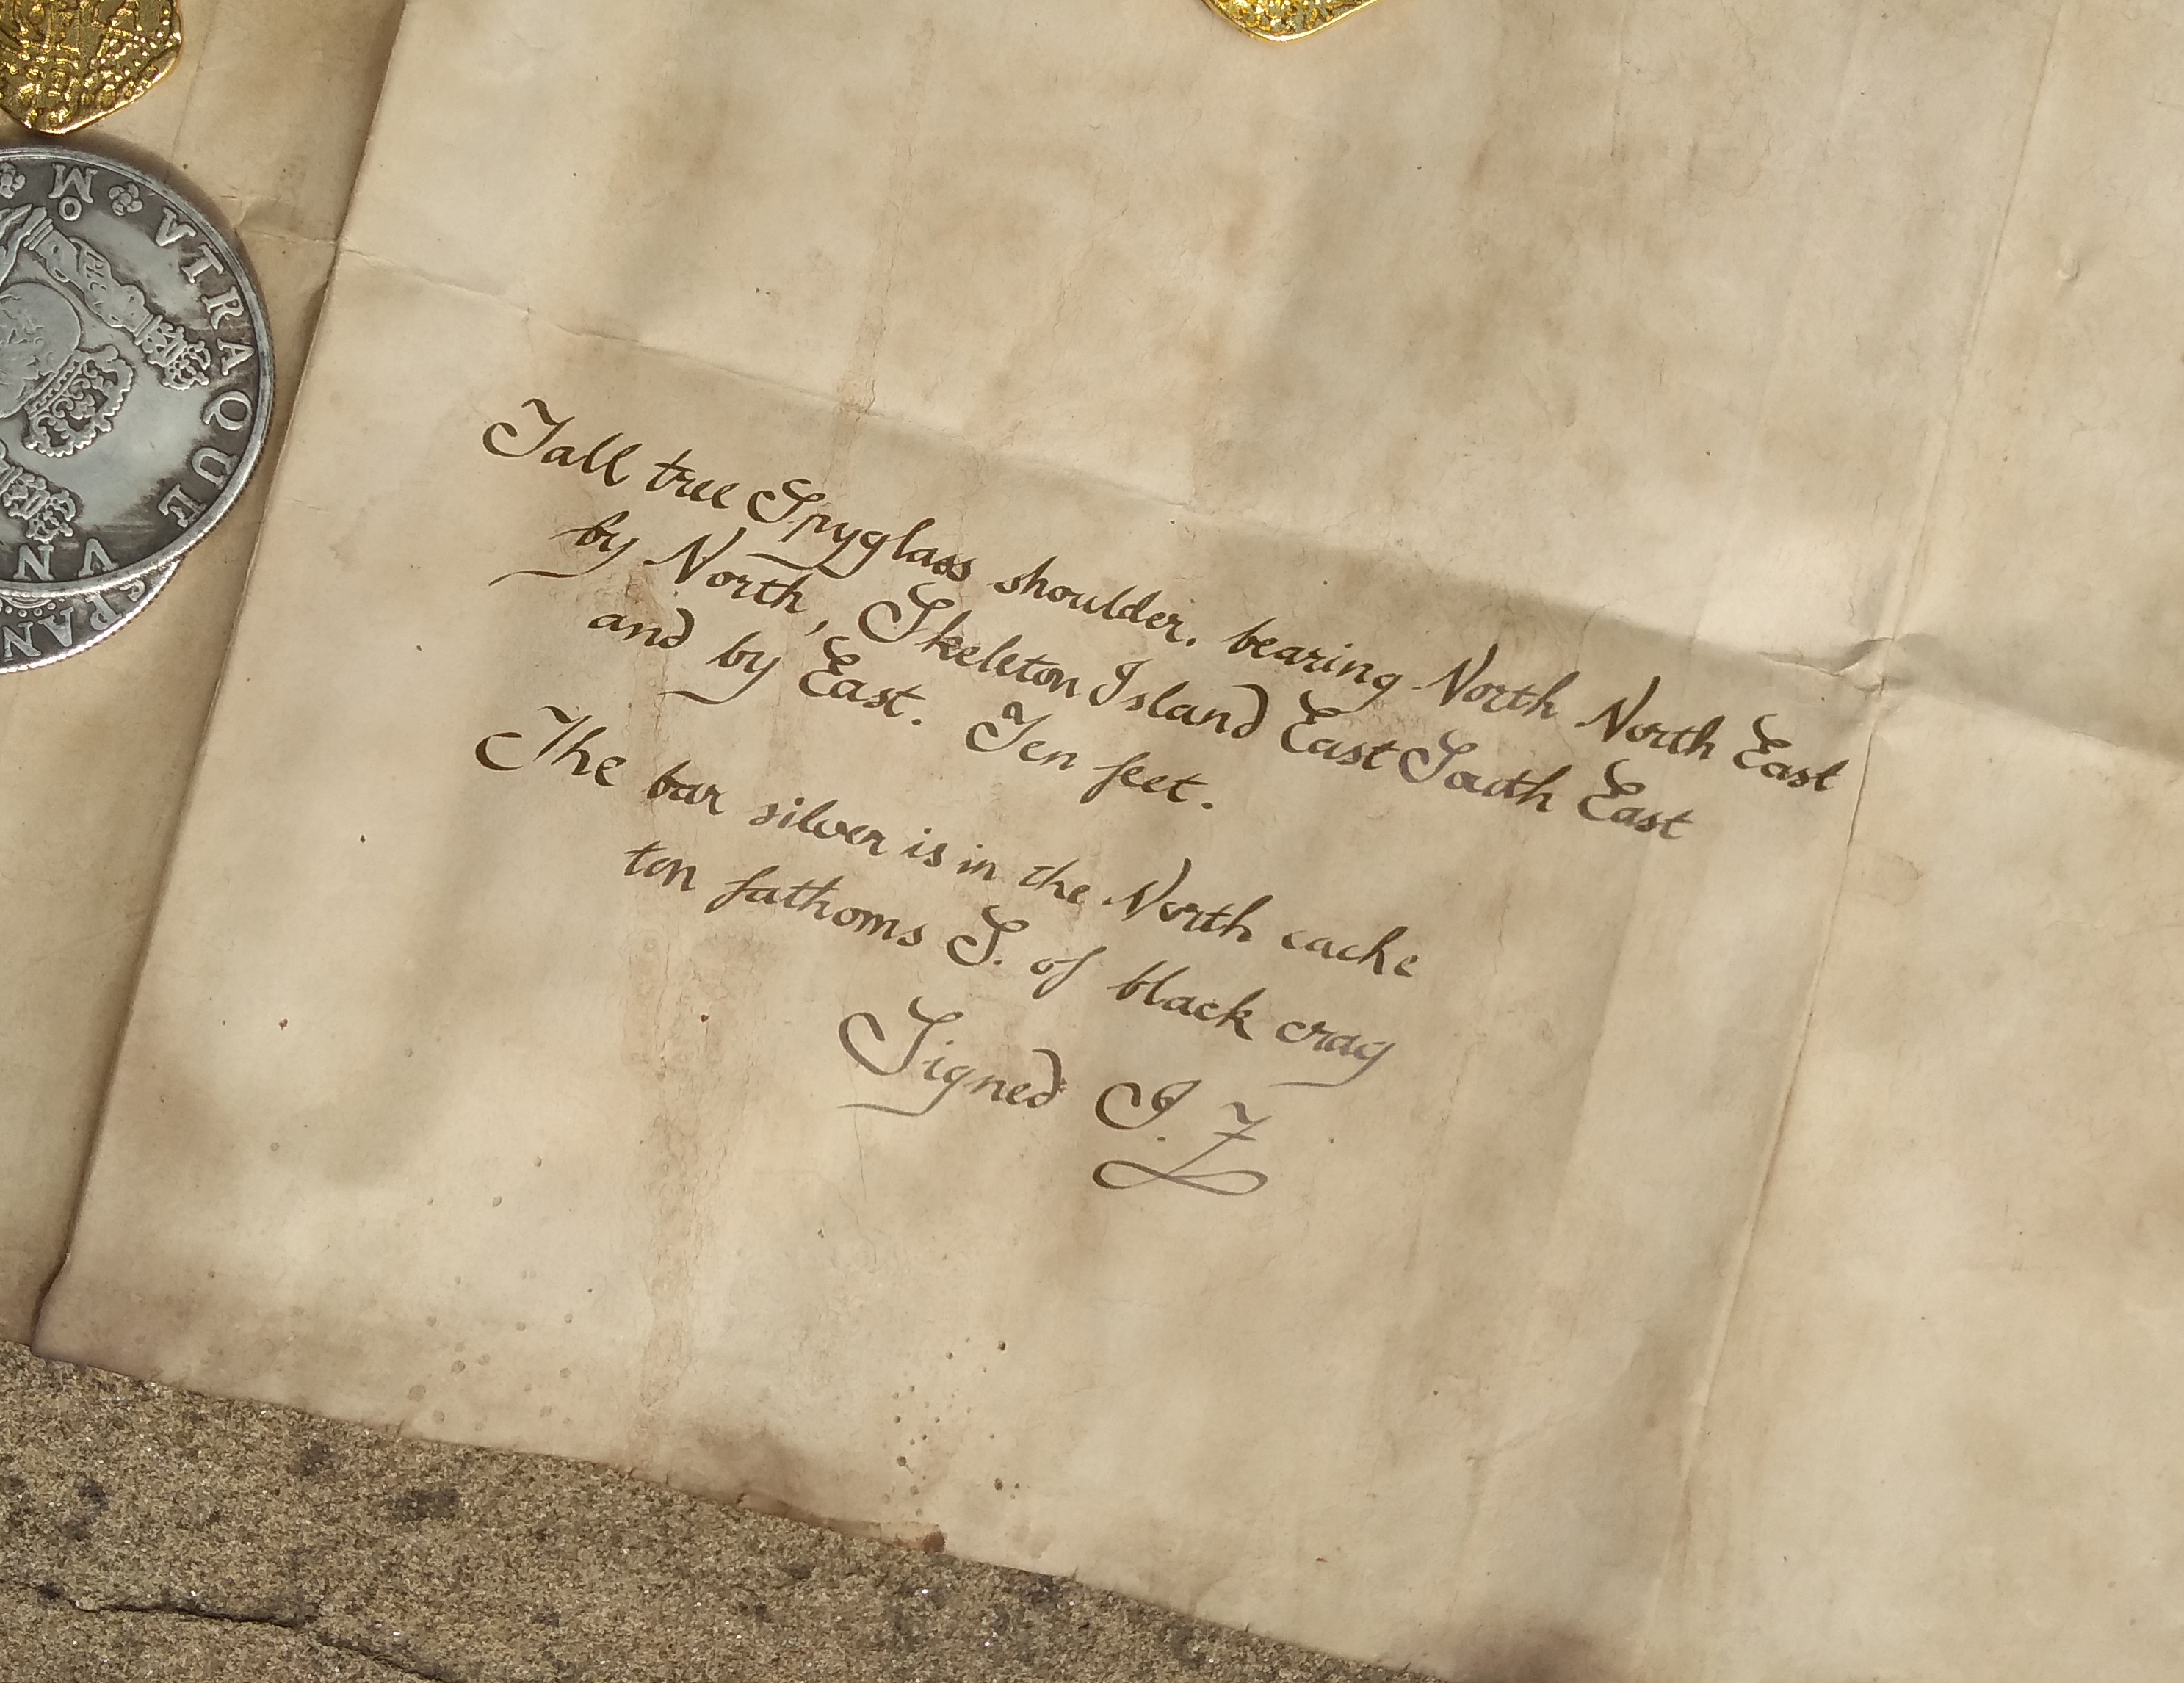 Tall tree Spyglass shoulder. bearing North North East
by North, Skeleton Island East South East
and by East. Ten feet.
The bar silver is in the North cache
ton fathoms S. of black crag
Signed J. F
M
VTRAQUE
VN
SPAN